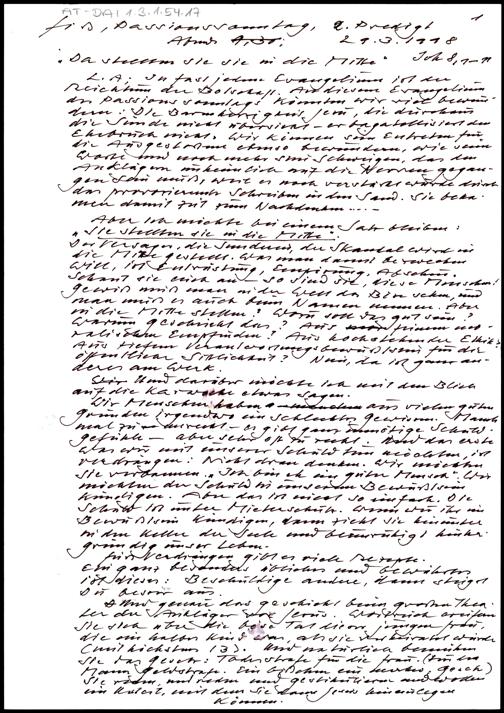 AT-DAI 1.3.1.54.17
1
Fiß, Passionssonntag, 2. Predigt
29.3.1998
"Da stellten sie sie in die Mitte" Joh 8,1-11
L. A; In fast jedem Evangelium ist der
Reichtum der Botschaft. An diesem Evangelium
des Passionssonntags könnten wir viel bewun-
dern: Die Barmherzigkeit Jesu, die durchaus
die Sünde nicht übersieht - er bagatellisiert den
Ehebruch nicht. Wir können sein Eintreten für
die Ausgestoßene ebenso bewundern, wie seine
Worte und noch mehr sein Schweigen, das den
Anklägern unheimlich auf die Nerven gegan-
gen sein muß, weil es noch verstärkt wurde durch
das provozierende Schreiben in den Sand. Sie beka-
men damit Zeit zum Nachdenken....
Aber ich möchte bei einem Satz bleiben:
"Sie stellten sie in die Mitte".
Der Versager, die Sünderin, der Skandal wird in
die Mitte gestellt. Was man damit bezwecken
will, ist Entrüstung, Empörung, Abscheu.
Schaut sie euch an - so sind sie, diese Menschen!
Gewiß muß man in der Welt das Böse sehen, und
man muß es auch beim Namen nennen. Aber
in die Mitte stellen? Wozu soll das gut sein?
Warum geschieht das? Aus feinem mo-
ralischen Empfinden? Aus hochstehender Ethik?
Aus tiefem Verantwortungsbewußtsein für die
öffentliche Sittlichkeit? Nein, da ist ganz an-
deres am Werk.
Und darüber möchte ich mit dem Blick
auf die Karwoche etwas sagen.
Wir Menschen haben aus vielen guten
Gründen irgendwo ein schlechtes Gewissen. Manch-
mal zu unrecht - es gibt ganz unnötige Schuld-
gefühle - aber sehr oft zu recht. Und das erste
was wir mit unserer Schuld tun möchten, ist
verdrängen: Nicht dran denken. Wir möchten
sie verbannen. "Ich bin eh ein guter Mensch". Wir
möchten der Schuld in unserem Bewußtsein
kündigen. Aber das ist nicht so einfach. Die
Schuld ist unter Mieterschutz. Wenn wir ihr im
Bewußtsein kündigen, dann zieht sie hinunter
in den Keller der Seele und beunruhigt hinter-
gründig unser Leben.
Fürs Verdrängen gibt es viele Rezepte.
Ein ganz besonders übliches und bewährtes
ist dieses: Beschuldige andere, dann steigst
Du besser aus.
Und genau das geschieht beim großen Thea-
ter der Ankläger vor Jesus. ereifern
sie sich über die böse Tat dieser jungen Frau,
die ein halbes Kind war, als sie verheiratet wurde
(mit höchstens 13). Und natürlich bemühen
sie das Gesetz: Todesstrafe für die Frau. (Für den
Mann Geldstrafe.
Sie und reden und gestikulieren und wollen
ein Urteil, mit dem sie dann Jesus hineinlegen
können.